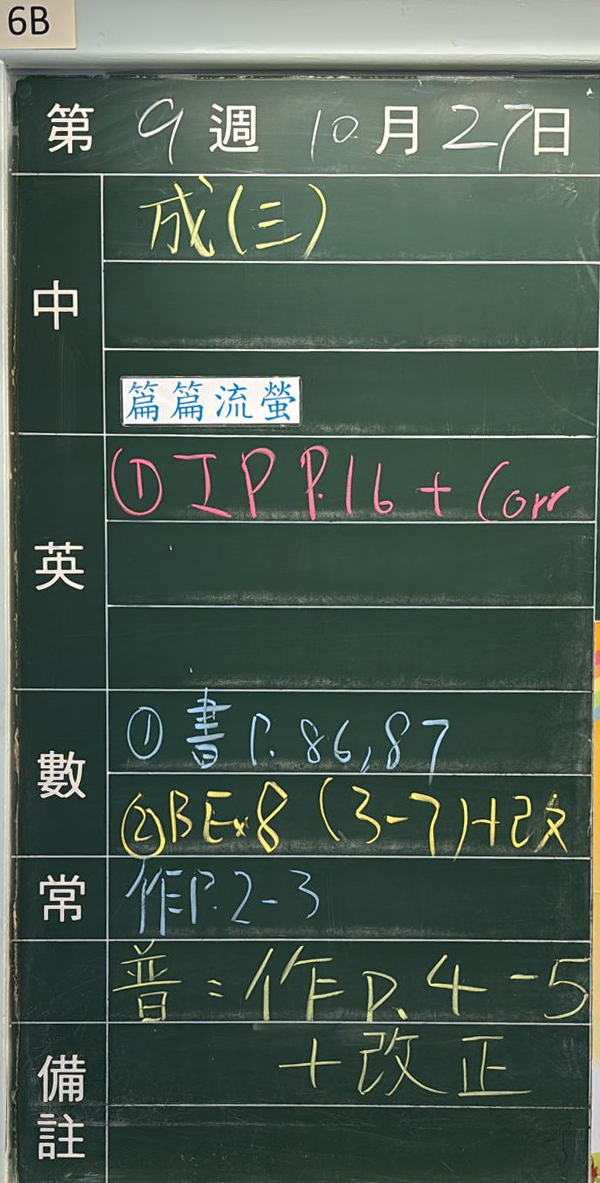 6B
第 9 週 10 月 27 日
中
成(三)
篇篇流螢
英
① IP P.16 + Corr
數
① 書 P. 86,87
② B Ex 8 (3-7)+改
常
作P.2-3
普:作 P. 4-5
+改正
備註